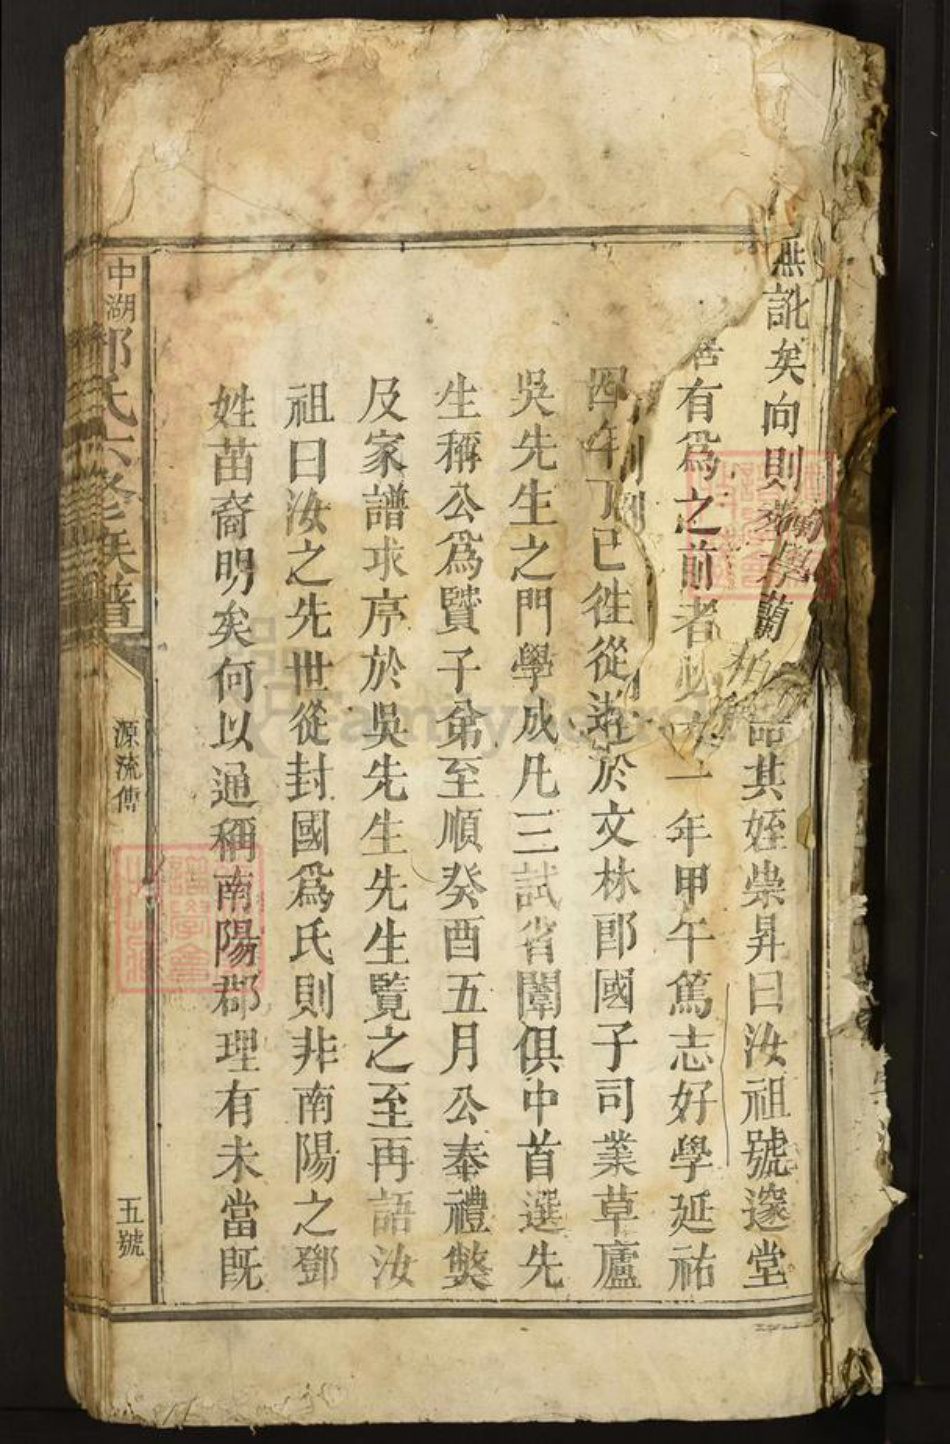 無訛矣向則
蘭
其姪崇昇曰汝祖號邃堂
有爲之前者必
一年甲午篤志好學延祐
四年丁巳徃從遊於文林郎國子司業草廬
吳先生之門學成凡三試省闈俱中首選先
生稱公爲賢子弟至順癸酉五月公奉禮幣
及家譜求序於吳先生先生覽之至再語汝
祖曰汝之先世從封國爲氏則非南陽之鄧
姓苗裔明矣何以通稱南陽郡理有未當既
中湖鄧氏六修族譜
源流傳
五號